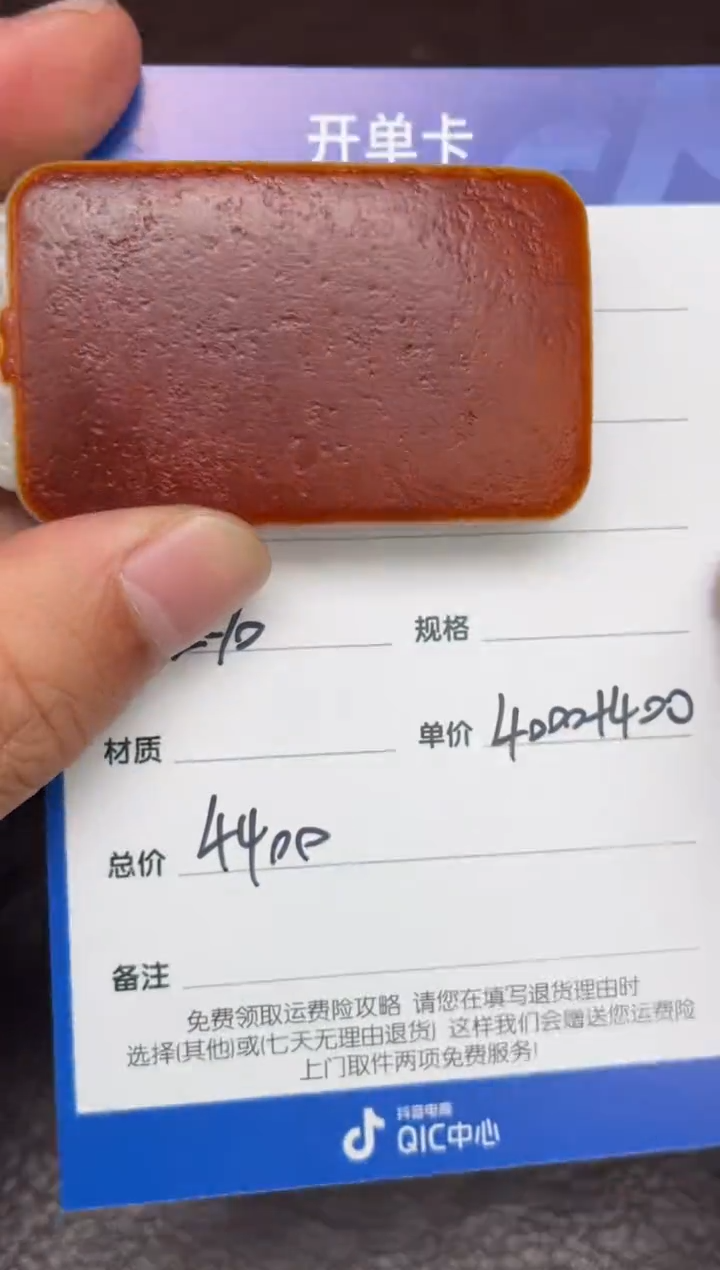 开单卡
规格
材质
单价 4000+400
总价 4400
备注
免费领取运费险攻略 请您在填写退货理由时
选择(其他)或(七天无理由退货) 这样我们会赠送您运费险
上门取件两项免费服务!
抖音电商
QIC中心